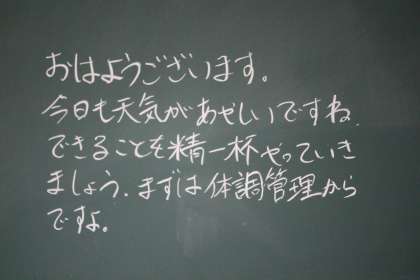 おはようございます。
今日も天気があやしいですね、
できることを精一杯やっていき
ましょう、まずは体調管理から
ですよ。